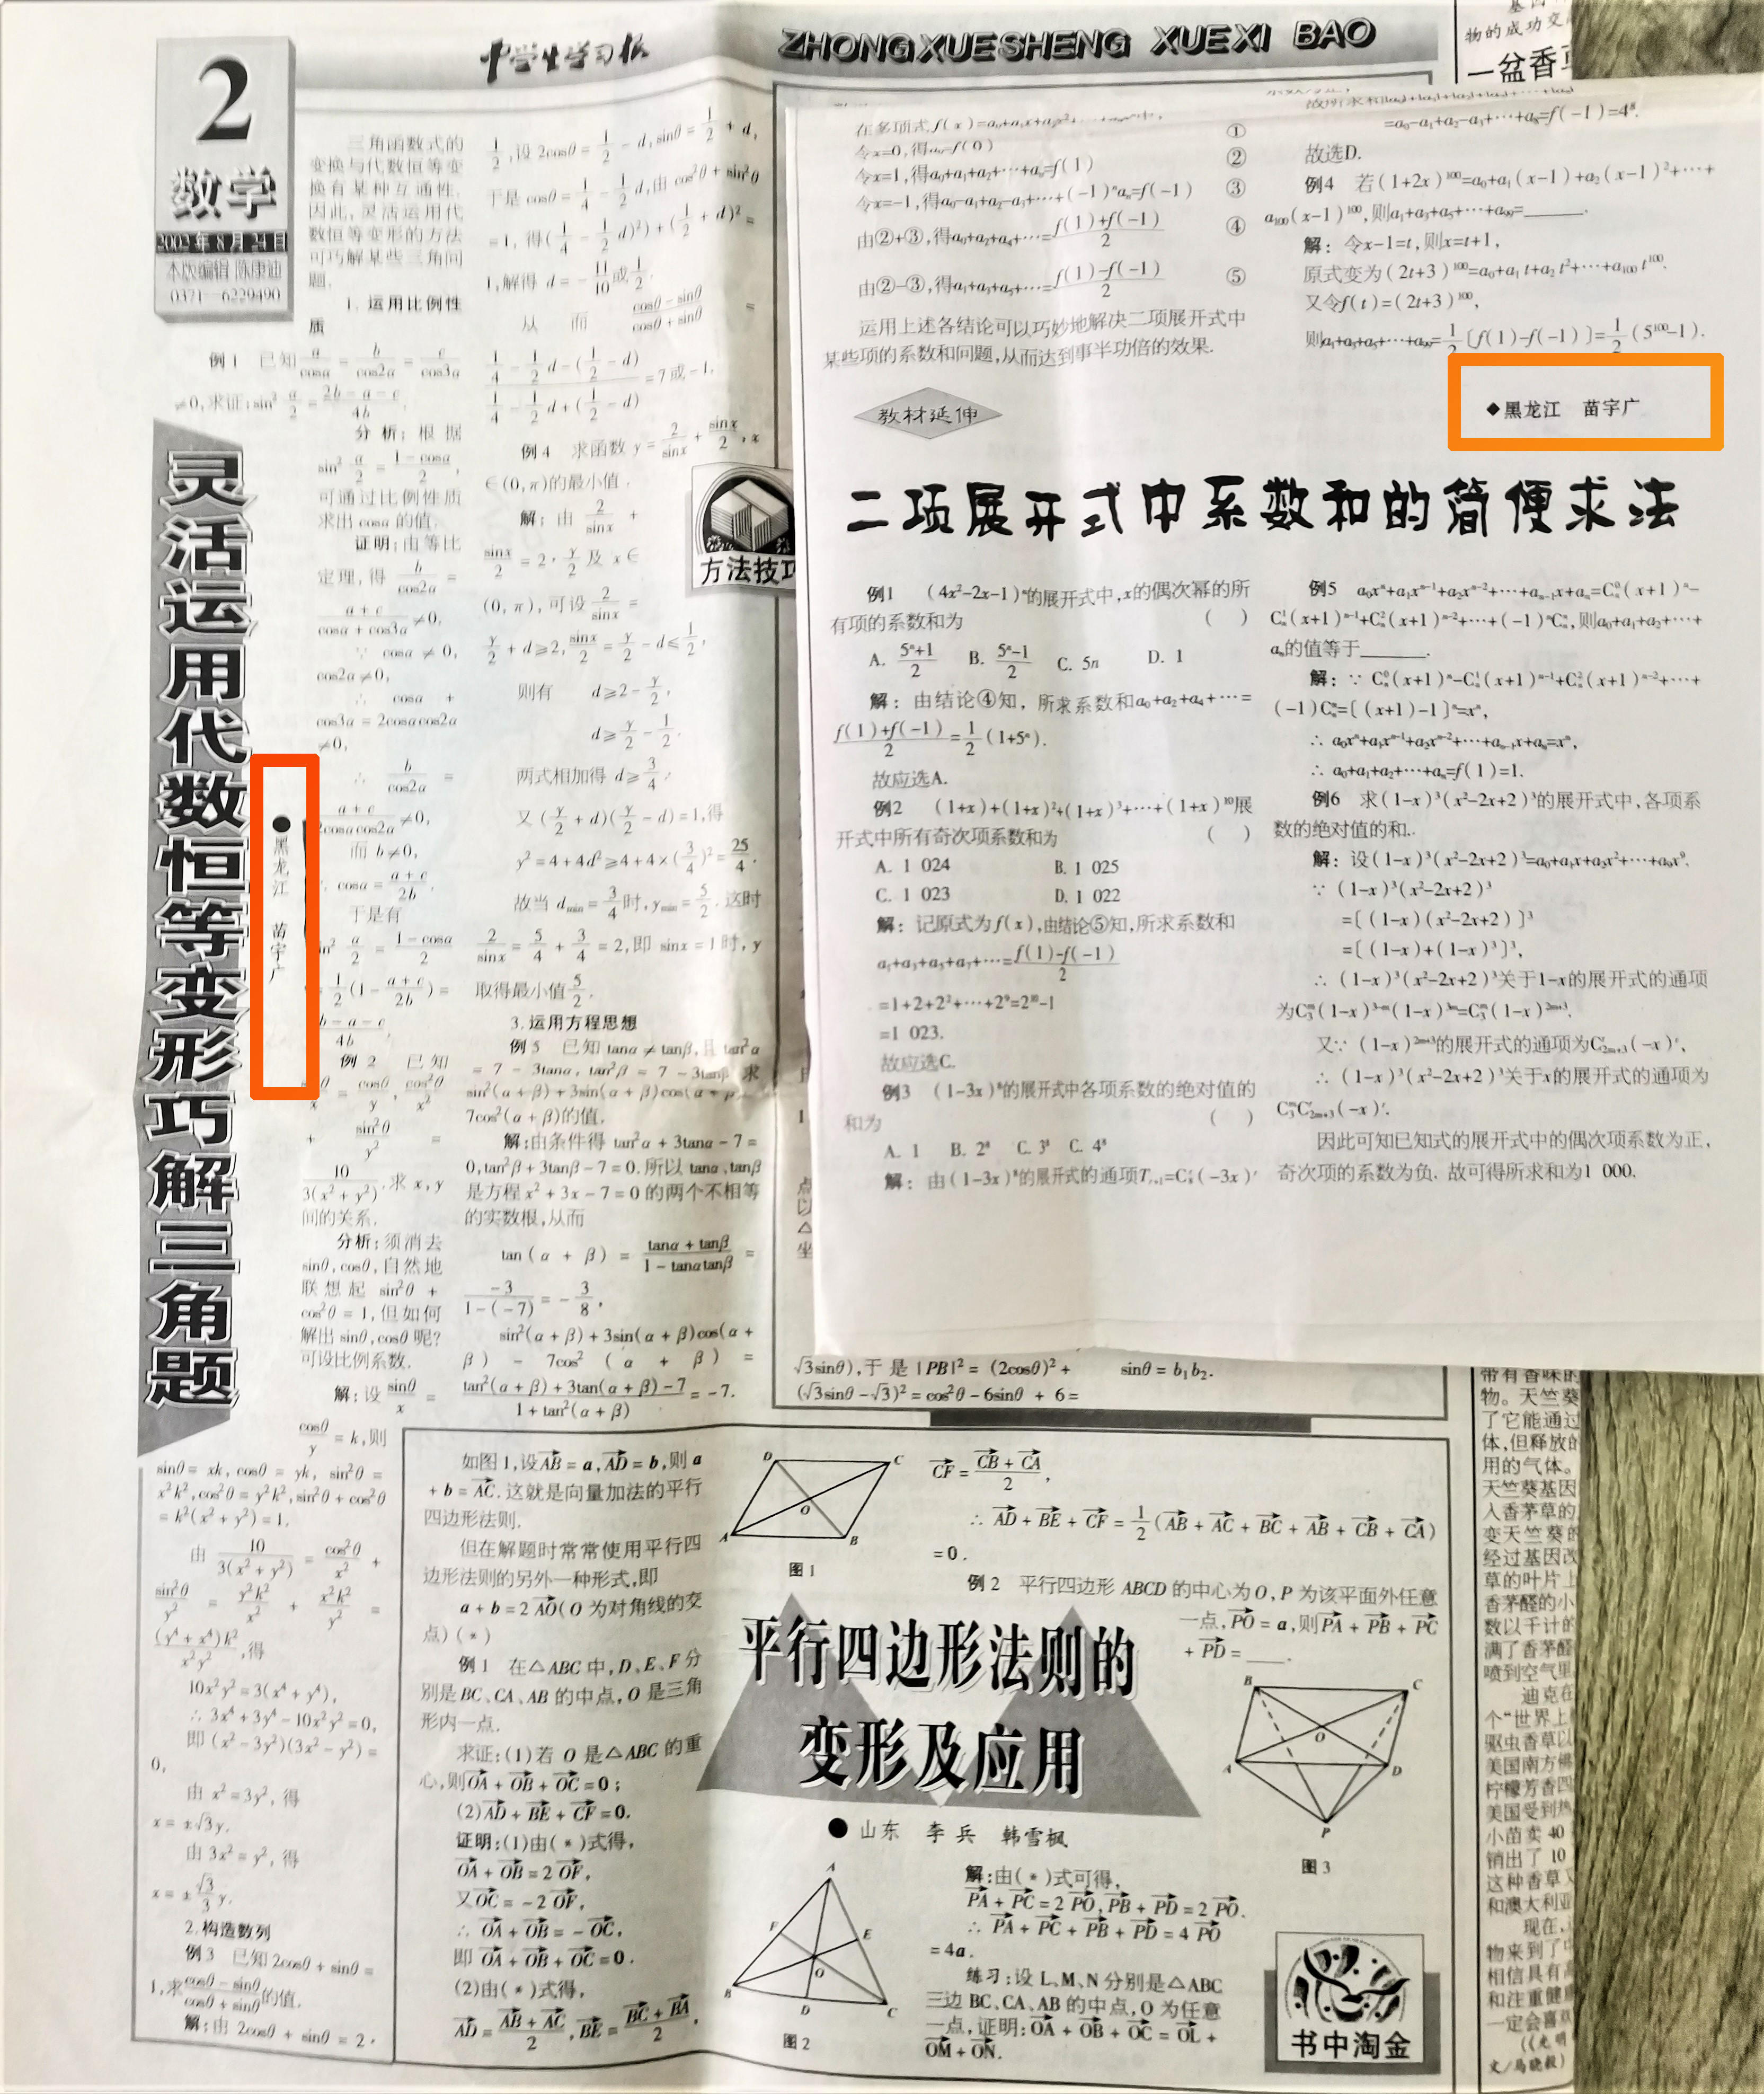 2
数学
2002年8月24日
本版编辑 陈康迪
0371—6229490
中学生学习报
ZHONGXUESHENG XUEXI BAO
灵活运用代数恒等变形巧解三角题
●黑龙江 苗宇广
三角函数式的
变换与代数恒等变
换有某种互通性.
因此,灵活运用代
数恒等变形的方法
可巧解某些三角问
题.
1.运用比例性
质
例1 已知a/cosα = b/cos2α = c/cos3α
≠0,求证:sin² α/2 = (2b-a-c)/4b.
分析:根据
sin² α/2 = (1-cosα)/2,
可通过比例性质
求出cosα的值.
证明:由等比
定理,得 b/cos2α =
(a+c)/(cosα+cos3α) ≠0,
∵ cosα≠0,
cos2α≠0,
∴ cosα +
cos3α = 2cosαcos2α
≠0,
∴ b/cos2α =
(a+c)/2cosαcos2α ≠0,
而 b≠0,
cosα = (a+c)/2b.
于是有
sin² α/2 = (1-cosα)/2
= 1/2(1-(a+c)/2b) =
例2 已知
10/3(x²+y²),求x,y
间的关系.
分析:须消去
sinθ,cosθ,自然地
联想起 sin²θ +
cos²θ = 1,但如何
解出sinθ,cosθ呢?
可设比例系数.
解:设 sinθ/x =
cosθ/y = k,则
sinθ = xk, cosθ = yk, sin²θ =
x²k²,cos²θ = y²k²,sin²θ + cos²θ
= k²(x²+y²) = 1.
由 10/3(x²+y²) = cos²θ/x² +
sin²θ/y² = y²k²/x² + x²k²/y² =
(y⁴+x⁴)k²/x²y²,得
10x²y² = 3(x⁴+y⁴),
∴ 3x⁴+3y⁴-10x²y² = 0,
即 (x²-3y²)(3x²-y²) =
0,
由 x² = 3y²,得
x = ±√3y.
由 3x² = y²,得
x = ±√3/3 y.
2.构造数列
例3 已知2cosθ + sinθ =
1,求(cosθ-sinθ)/(cosθ+sinθ)的值.
解:由 2cosθ + sinθ = 2·
1/2,设 2cosθ = 1/2 - d,sinθ = 1/2 + d,
于是cosθ = 1/4 - 1/2 d,由 cos²θ + sin²θ
= 1,得(1/4 - 1/2 d)²)+(1/2 + d)² =
1,解得 d = -11/10或1/2.
从而 (cosθ-sinθ)/(cosθ+sinθ) =
(1/4 - 1/2 d-(1/2-d))/(1/4 - 1/2 d+(1/2-d)) = 7或-1.
例4 求函数 y = 2/sinx + sinx/2,x
∈(0,π)的最小值.
解:由 2/sinx +
sinx/2 = 2·y/2 及 x∈
(0,π),可设 2/sinx =
y/2 + d≥2,sinx/2 = y/2 - d≤1/2,
则有 d≥2 - y/2,
d≥y/2 - 1/2.
两式相加得 d≥3/4.
又(y/2+d)(y/2-d) = 1,得
y² = 4+4d²≥4+4×(3/4)² = 25/4.
故当 dmin = 3/4时,ymin = 5/2.这时
2/sinx = 5/4 + 3/4 = 2,即 sinx = 1时,y
取得最小值5/2.
3.运用方程思想
例5 已知tanα≠tanβ,且 tan²α
= 7 - 3tanα, tan²β = 7 - 3tanβ,求
sin²(α+β)+3sin(α+β)cos(α+β)
7cos²(α+β)的值.
解:由条件得 tan²α+3tanα-7 =
0,tan²β+3tanβ-7=0.所以tanα、tanβ
是方程x²+3x-7=0的两个不相等
的实数根,从而
tan(α+β) = (tanα+tanβ)/(1-tanαtanβ) =
-3/(1-(-7)) = -3/8,
sin²(α+β)+3sin(α+β)cos(α+
β) - 7cos²(α+β) =
(tan²(α+β)+3tan(α+β)-7)/(1+tan²(α+β)) = -7.
方法技巧
在多项式f(x)=a₀+a₁x+a₂x²+⋯
令x=0,得a₀=f(0) ①
令x=1,得a₀+a₁+a₂+⋯+aₙ=f(1) ②
令x=-1,得a₀-a₁+a₂-a₃+⋯+(-1)ⁿaₙ=f(-1) ③
由②+③,得a₀+a₂+a₄+⋯=(f(1)+f(-1))/2 ④
由②-③,得a₁+a₃+a₅+⋯=(f(1)-f(-1))/2 ⑤
运用上述各结论可以巧妙地解决二项展开式中
某些项的系数和问题,从而达到事半功倍的效果.
=a₀-a₁+a₂-a₃+⋯+a₈=f(-1)=4⁸.
故选D.
例4 若(1+2x)¹⁰⁰=a₀+a₁(x-1)+a₂(x-1)²+⋯+
a₁₀₀(x-1)¹⁰⁰,则a₁+a₃+a₅+⋯+a₉₉=______.
解:令x-1=t,则x=t+1,
原式变为(2t+3)¹⁰⁰=a₀+a₁t+a₂t²+⋯+a₁₀₀t¹⁰⁰.
又令f(t)=(2t+3)¹⁰⁰,
则a₁+a₃+a₅+⋯+a₉₉=1/2[f(1)-f(-1)]=1/2(5¹⁰⁰-1).
教材延伸
◆黑龙江 苗宇广
二项展开式中系数和的简便求法
例1 (4x²-2x-1)ⁿ的展开式中,x的偶次幂的所
有项的系数和为 ( )
A. (5ⁿ+1)/2 B. (5ⁿ-1)/2 C. 5n D. 1
解:由结论④知,所求系数和a₀+a₂+a₄+⋯=
(f(1)+f(-1))/2=1/2(1+5ⁿ).
故应选A.
例2 (1+x)+(1+x)²+(1+x)³+⋯+(1+x)¹⁰展
开式中所有奇次项系数和为 ( )
A. 1 024 B. 1 025
C. 1 023 D. 1 022
解:记原式为f(x),由结论⑤知,所求系数和
a₁+a₃+a₅+a₇+⋯=(f(1)-f(-1))/2
=1+2+2²+⋯+2⁹=2¹⁰-1
=1 023.
故应选C.
例3 (1-3x)⁸的展开式中各项系数的绝对值的
和为 ( )
A. 1 B. 2⁸ C. 3⁸ C. 4⁸
解:由(1-3x)⁸的展开式的通项Tᵣ₊₁=C₈ʳ(-3x)ʳ
例5 a₀xⁿ+a₁xⁿ⁻¹+a₂xⁿ⁻²+⋯+aₙ₋₁x+aₙ=Cₙ⁰(x+1)ⁿ-
Cₙ¹(x+1)ⁿ⁻¹+Cₙ²(x+1)ⁿ⁻²+⋯+(-1)ⁿCₙⁿ,则a₀+a₁+a₂+⋯+
aₙ的值等于______.
解:∵ Cₙ⁰(x+1)ⁿ-Cₙ¹(x+1)ⁿ⁻¹+Cₙ²(x+1)ⁿ⁻²+⋯+
(-1)Cₙⁿ=[(x+1)-1]ⁿ=xⁿ,
∴ a₀xⁿ+a₁xⁿ⁻¹+a₂xⁿ⁻²+⋯+aₙ₋₁x+aₙ=xⁿ,
∴ a₀+a₁+a₂+⋯+aₙ=f(1)=1.
例6 求(1-x)³(x²-2x+2)³的展开式中,各项系
数的绝对值的和..
解:设(1-x)³(x²-2x+2)³=a₀+a₁x+a₂x²+⋯+a₉x⁹.
∵ (1-x)³(x²-2x+2)³
=[(1-x)(x²-2x+2)]³
=[(1-x)+(1-x)³]³,
∴ (1-x)³(x²-2x+2)³关于1-x的展开式的通项
为C₃ᵐ(1-x)³⁻ᵐ(1-x)³ᵐ=C₃ᵐ(1-x)²ᵐ⁺³.
又∵ (1-x)²ᵐ⁺³的展开式的通项为Cʳ₂ₘ₊₃(-x)ʳ,
∴ (1-x)³(x²-2x+2)³关于x的展开式的通项为
C₃ᵐCʳ₂ₘ₊₃(-x)ʳ.
因此可知已知式的展开式中的偶次项系数为正,
奇次项的系数为负. 故可得所求和为1 000.
√3sinθ),于是|PB|² = (2cosθ)² +
(√3sinθ-√3)² = cos²θ-6sinθ + 6 =
sinθ = b₁b₂.
如图1,设AB = a,AD = b,则a
+ b = AC.这就是向量加法的平行
四边形法则.
但在解题时常常使用平行四
边形法则的另外一种形式,即
a + b = 2AO(O为对角线的交
点)(*)
例1 在△ABC中,D、E、F分
别是BC、CA、AB的中点,O是三角
形内一点.
求证:(1)若O是△ABC的重
心,则OA + OB + OC = 0;
(2)AD + BE + CF = 0.
证明:(1)由(*)式得,
OA + OB = 2OF,
又OC = -2OF,
∴ OA + OB = -OC,
即 OA + OB + OC = 0.
(2)由(*)式得,
AD = (AB+AC)/2,BE = (BC+BA)/2,
D C O A B
图1
平行四边形法则的
变形及应用
●山东 李兵 韩雪枫
A F E O B D C
图2
CF = (CB+CA)/2,
∴ AD + BE + CF = 1/2(AB + AC + BC + AB + CB + CA)
= 0.
例2 平行四边形ABCD的中心为O,P为该平面外任意
一点,PO = a,则PA + PB + PC
+ PD = ____.
B C O A D P
图3
解:由(*)式可得,
PA + PC = 2PO,PB + PD = 2PO.
∴ PA + PC + PB + PD = 4PO
= 4a.
练习:设L、M、N分别是△ABC
三边BC、CA、AB的中点,O为任意
一点,证明:OA + OB + OC = OL +
OM + ON.
书中淘金
物的成功交
一盆香
带有香味的
物。天竺葵
了它能通过
体,但释放的
用的气体。
天竺葵基因
入香茅草的
变天竺葵的
经过基因改
草的叶片上
香茅醛的小
数以千计的
满了香茅醛
喷到空气里
迪克在
个“世界上
驱虫香草以
美国南方佛
柠檬芳香四
美国受到热
小苗卖40
销出了10
这种香草又
和澳大利亚
现在,
物来到了中
相信具有
和注重健康
一定会喜欢
文/马晓毅)